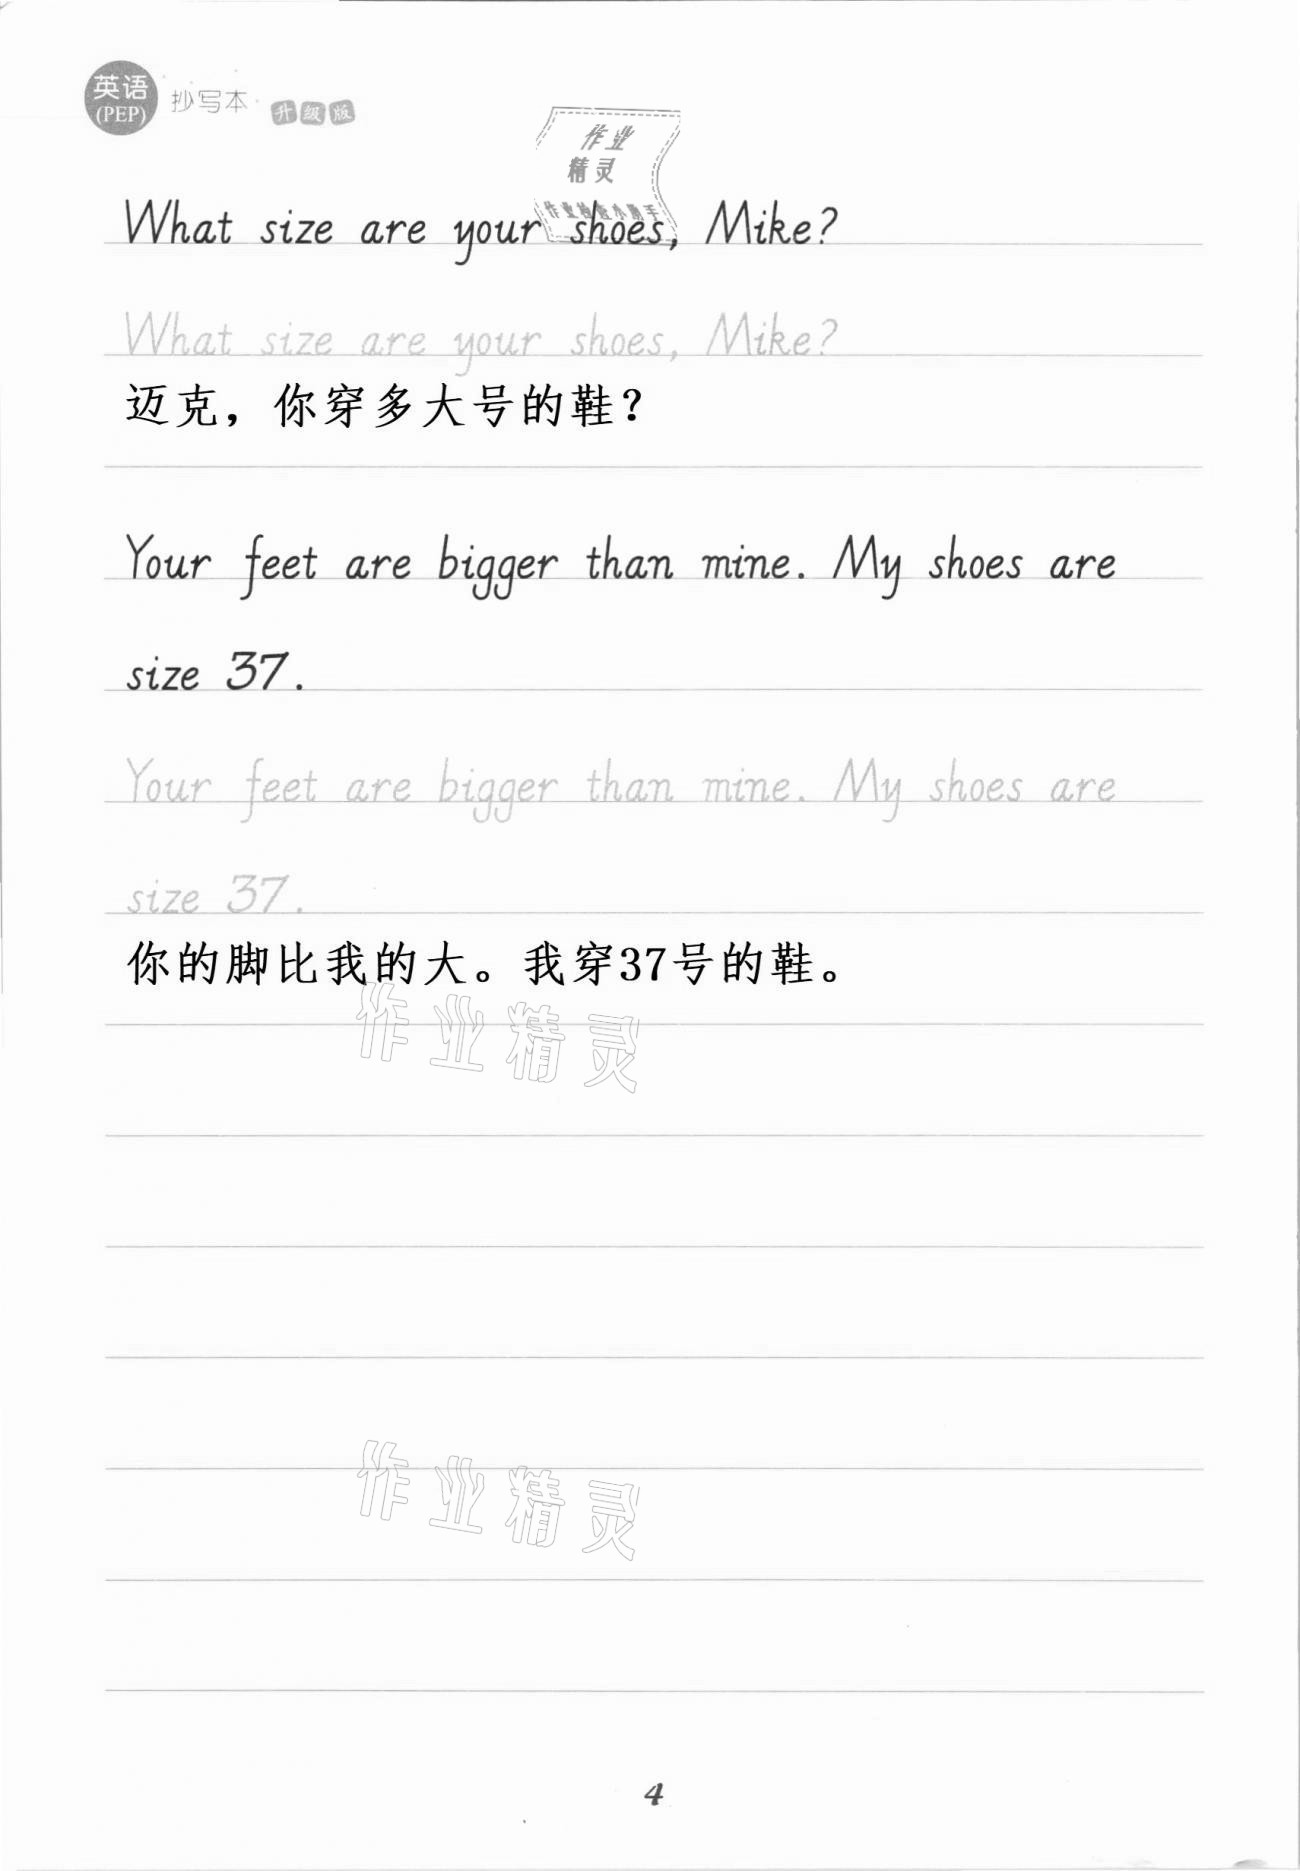 英语
(PEP)
抄写本
升级版
作业
精灵
作业检查小助手
What size are your shoes, Mike?
What size are your shoes, Mike?
迈克，你穿多大号的鞋？
Your feet are bigger than mine. My shoes are
size 37.
Your feet are bigger than mine. My shoes are
size 37.
你的脚比我的大。我穿37号的鞋。
作业精灵
作业精灵
4